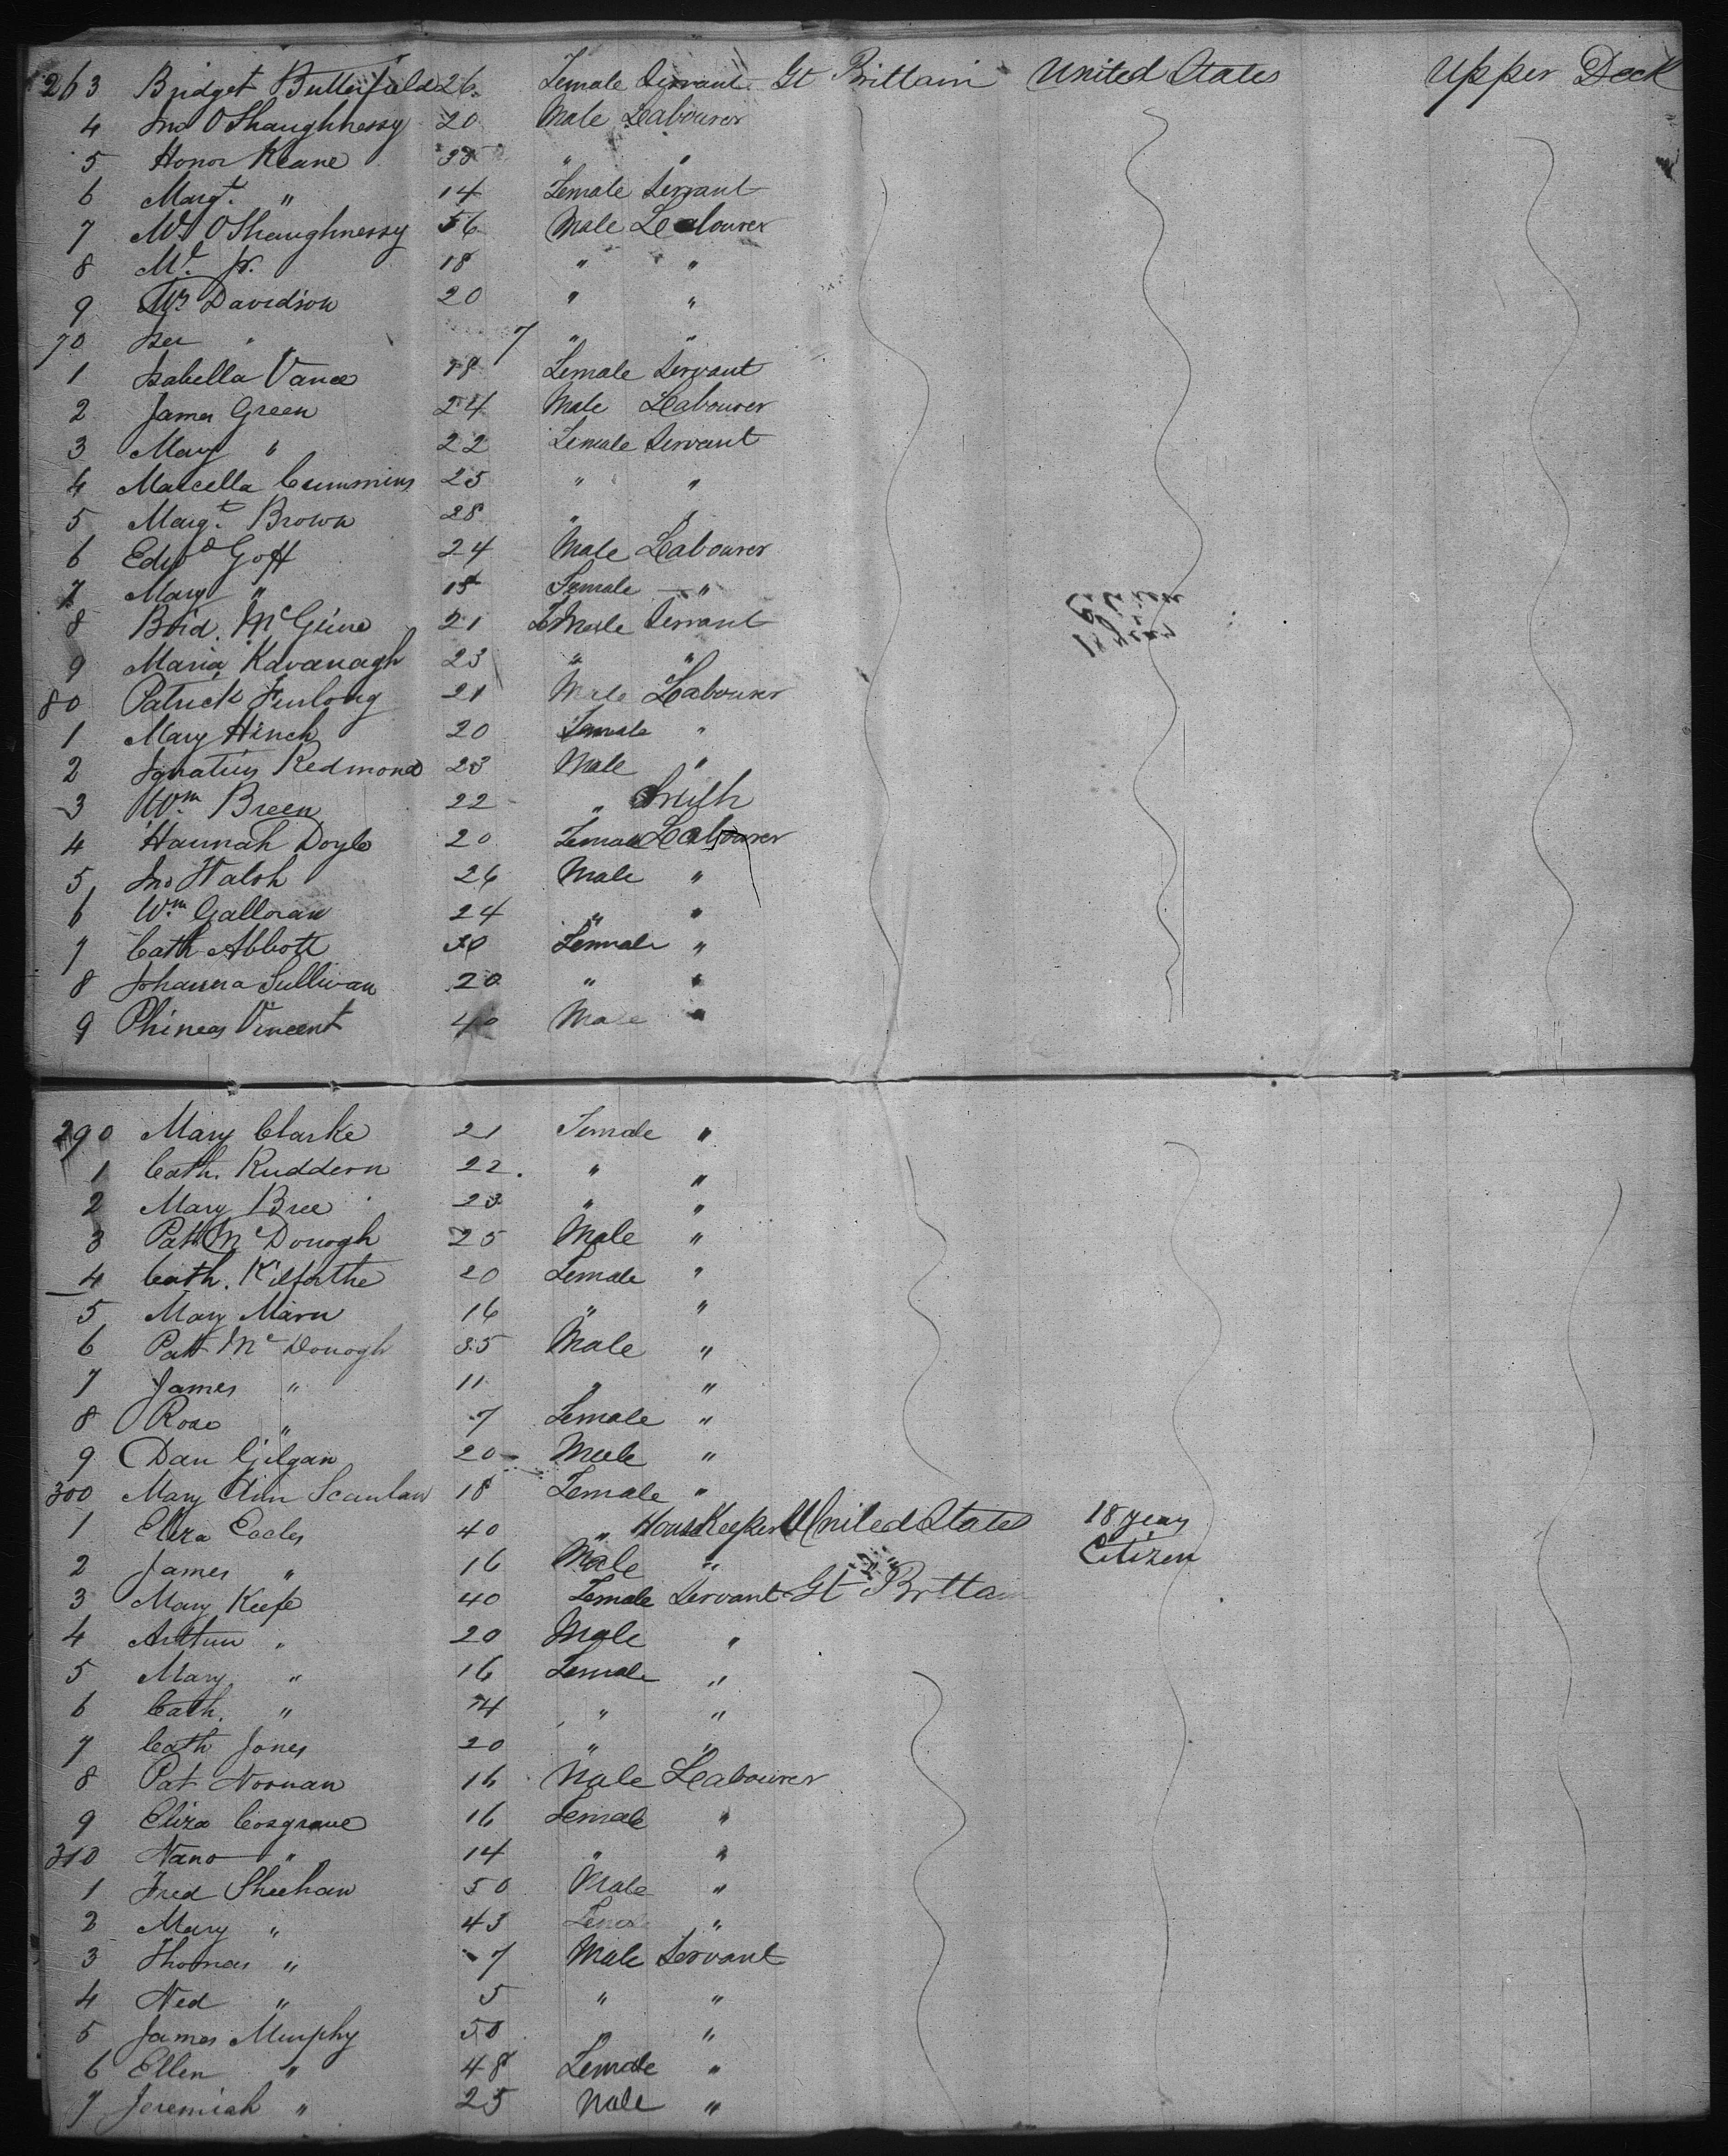 263 Bridget Butterfield 26 Female Servant Gt Brittain United States Upper Deck
4 Jno O'Shaughnessy 20 Male Labourer
5 Honor Keane 35 " "
6 Margt. " 14 Female Servant
7 O'Shaughnessy 56 Male Labourer
8 Jr. 18 " "
9 Davidson 20 " "
70 " 7 " "
1 Isabella Vance 18 Female Servant
2 James Green 24 Male Labourer
3 Mary " 22 Female Servant
4 Marcella Cummins 25 " "
5 Margt. Brown 28 " "
6 Edwd Goff 24 Male Labourer
7 Mary " 18 Female "
8 Brid. 21 Female Servant
Citizen
9 Maria Kavanagh 23 " "
80 Patrick Furlong 21 Male Labourer
1 Mary Hinch 20 Female "
2 Ignatius Redmond 23 Male "
3 Wm Breen 22 " Smith
4 Hannah Doyle 20 Female Labourer
5 Jno Walsh 26 Male "
6 Wm Galloran 24 " "
7 Cath Abbott 30 Female "
8 Johanna Sullivan 20 " "
9 Phineas Vincent 40 Male "
290 Mary Clarke 21 Female "
1 Cath. Ruddern 22 " "
2 Mary Bree 23 " "
3 Patt McDonogh 25 Male "
4 Cath. 20 Female "
5 Mary 16 " "
6 Patt McDonogh 35 Male "
7 James " 11 " "
8 Rose " 7 Female "
9 Dan Gilgan 20 Male "
300 Mary Ann Scanlan 18 Female "
1 Eliza Eccles 40 " HouseKeeper United States 18 years
2 James " 16 Male " " Citizen
3 Mary Keefe 40 Female Servant Gt Brittain
4 Arthur " 20 Male "
5 Mary " 16 Female "
6 Cath. " 14 " "
7 Cath Jones 20 " "
8 Pat Noonan 16 Male Labourer
9 Eliza Cosgrave 16 Female "
310 Nano " 14 " "
1 Fred Sheehan 50 Male "
2 Mary " 43 Female "
3 Thomas " 7 Male Servant
4 Ned " 5 " "
5 James Murphy 50 " "
6 Ellen " 48 Female "
7 Jeremiah " 25 Male "